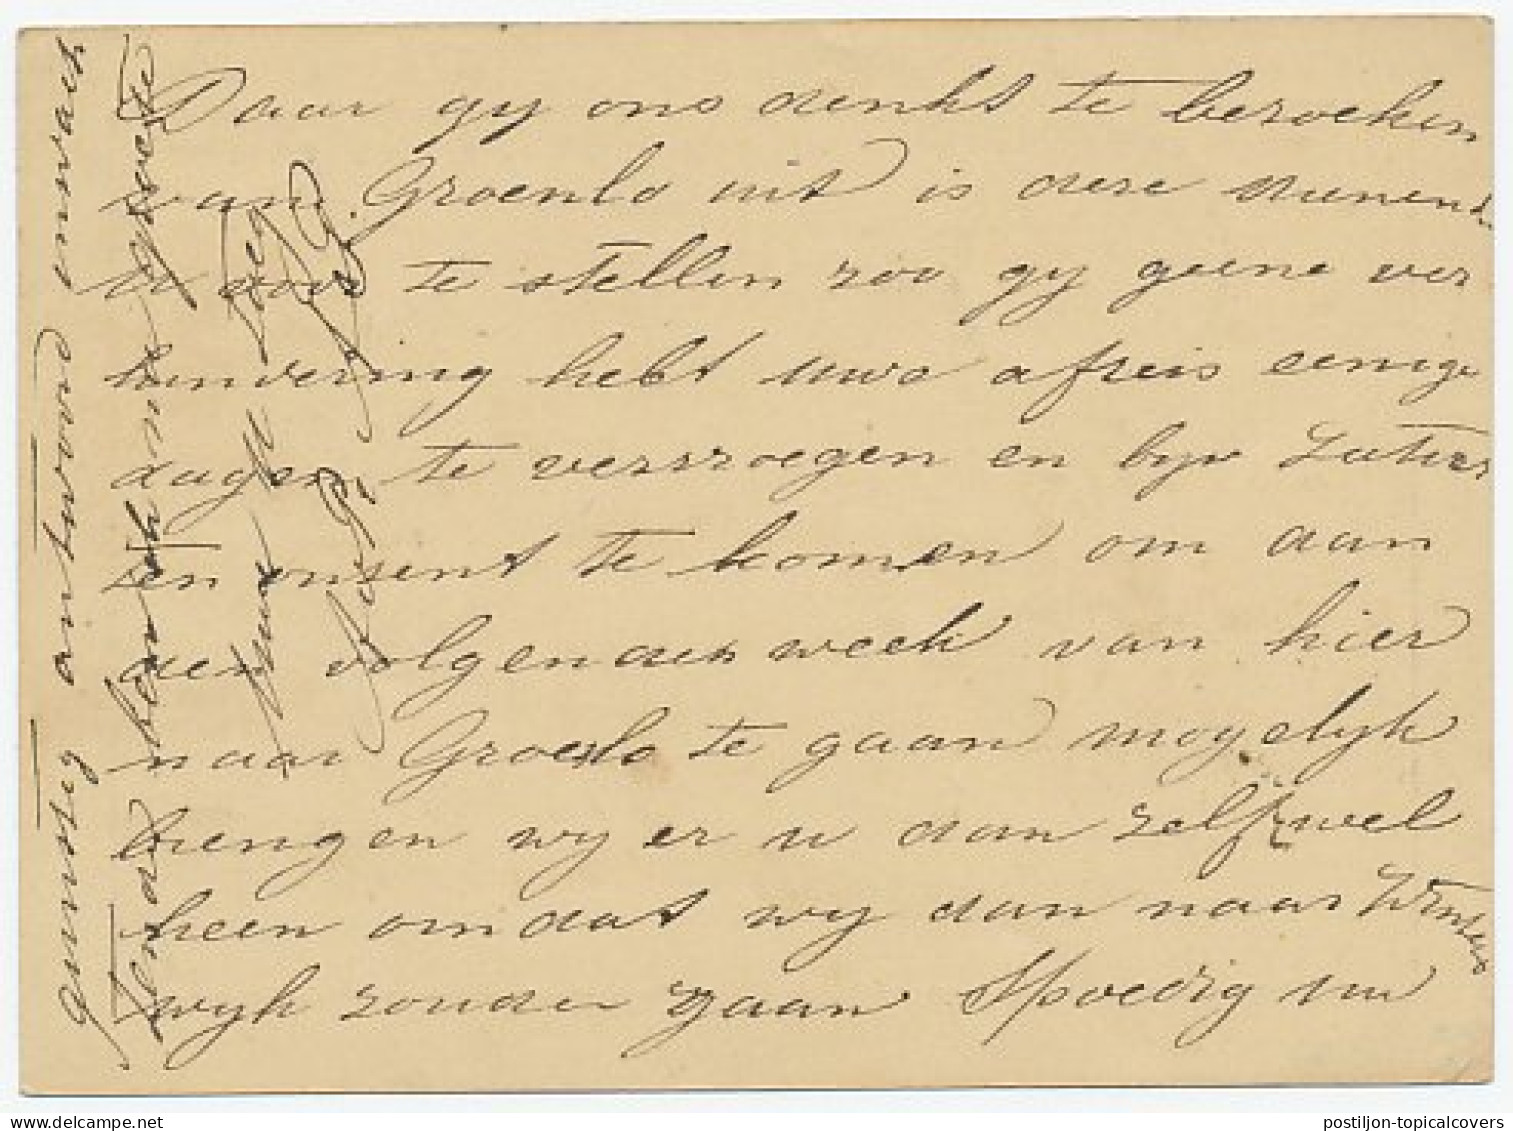 Daar gy ons denkt te bezoeken
van Groenlo uit is deze dienende
U voor te stellen zoo gy geene ver
hindering hebt uwe afreis eenige
dagen te vervroegen en byv Zater
ten onsent te komen om aan
den volgenden week van hier
naar Groenlo te gaan mogelyk
brengen wy er u dan zelf wel
heen omdat wy dan naar Winters
wyk zouden gaan Spoedig uw
gunstig antwoord onwach
tend ben ik na groete
Uw toeg
postiljon-topicalcovers